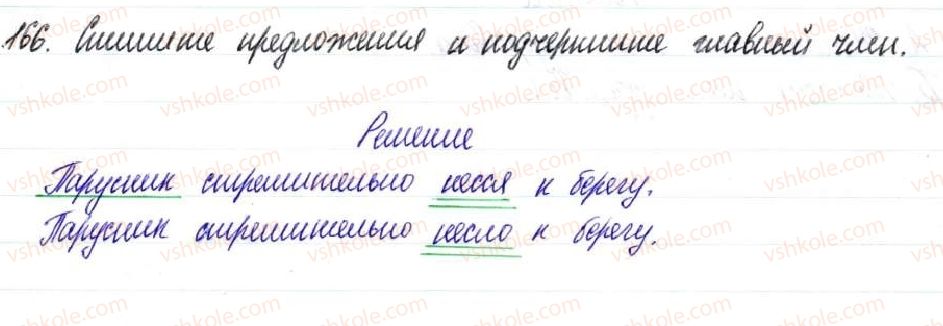 166. Спишите предложения и подчеркните главный член.
Решение
Парусник стремительно несся к берегу.
Парусник стремительно несло к берегу.
vshkole.com